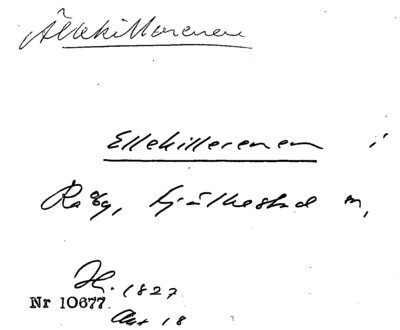 Ällekillorenen
Ellekillerenen i
Råby, Gjälkestad m,
H. 1827
Nr 10677
Akt 18